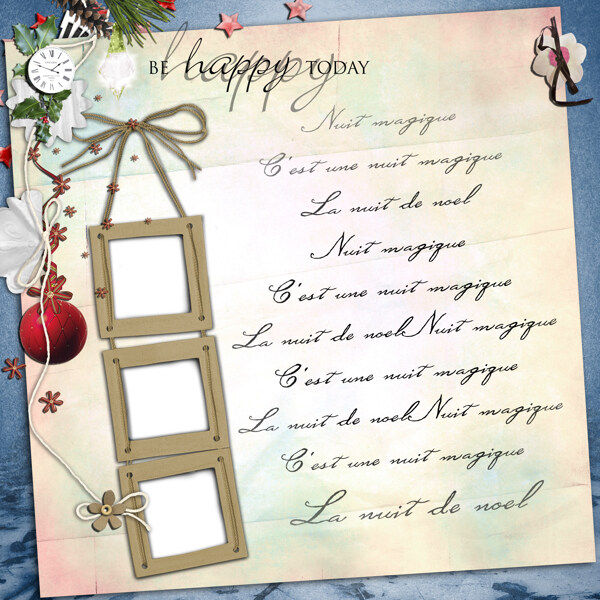 BE happy TODAY
happy
Nuit magique
C'est une nuit magique
La nuit de noel
Nuit magique
C'est une nuit magique
La nuit de noel Nuit magique
C'est une nuit magique
La nuit de noel Nuit magique
C'est une nuit magique
La nuit de noel